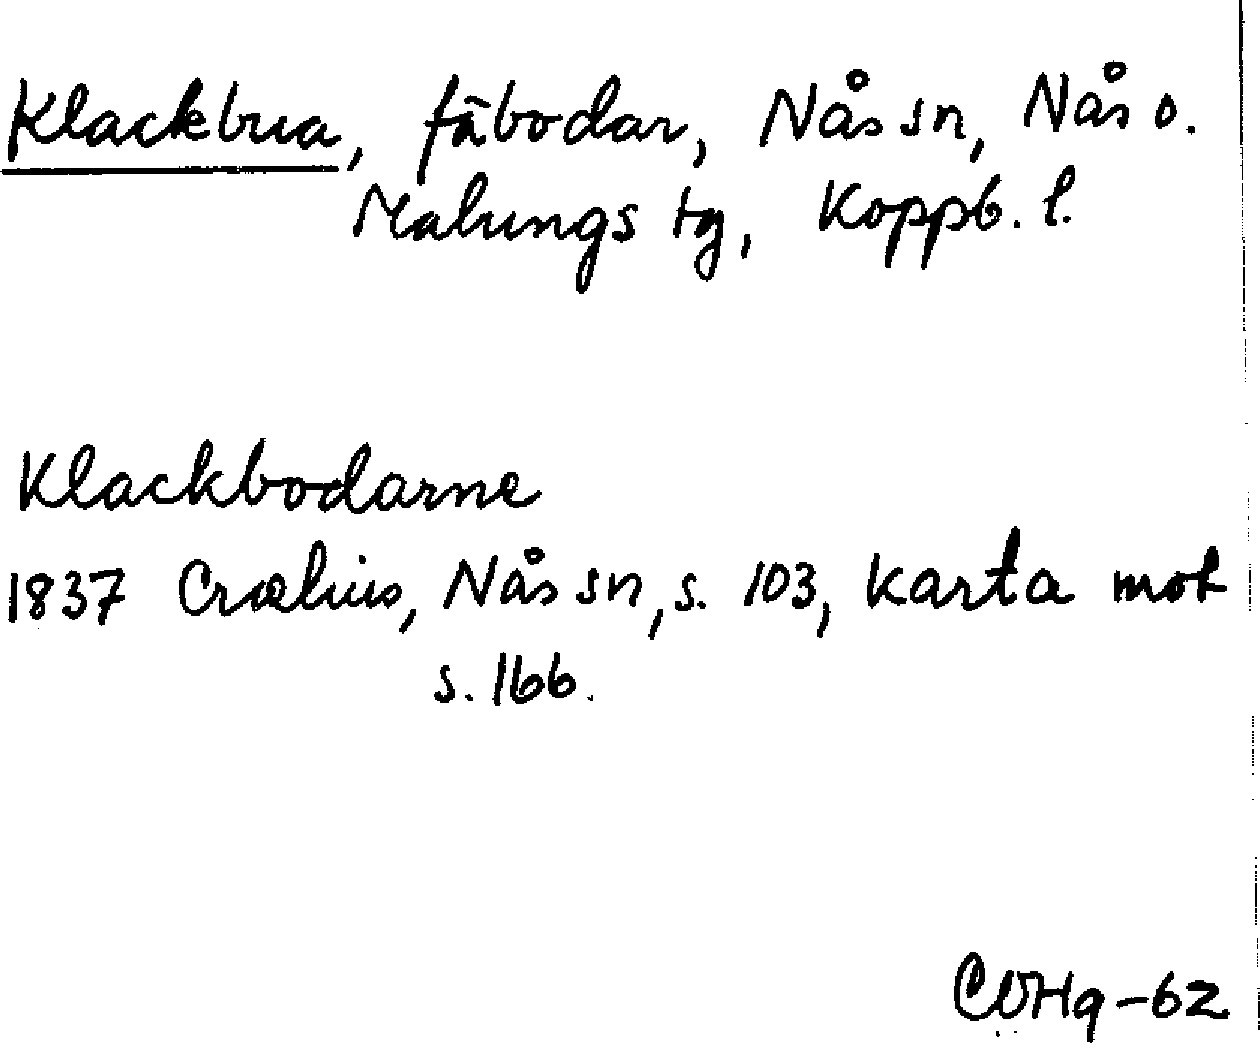 Klackbua, fäbodar, Nås sn, Nås o.
Malungs tg, Koppb. l.
Klackbodarne
1837 Crælius, Nås sn, s. 103, karta mot
s. 166.